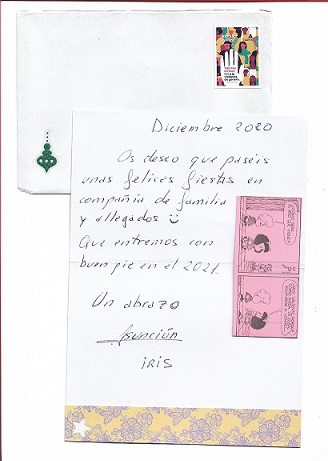 Diciembre 2020
Os deseo que paséis
unas felices fiestas en
compañia de familia
y allegados
Que entremos con
buen pie en el 2021.
Un abrazo
Asunción
IRIS